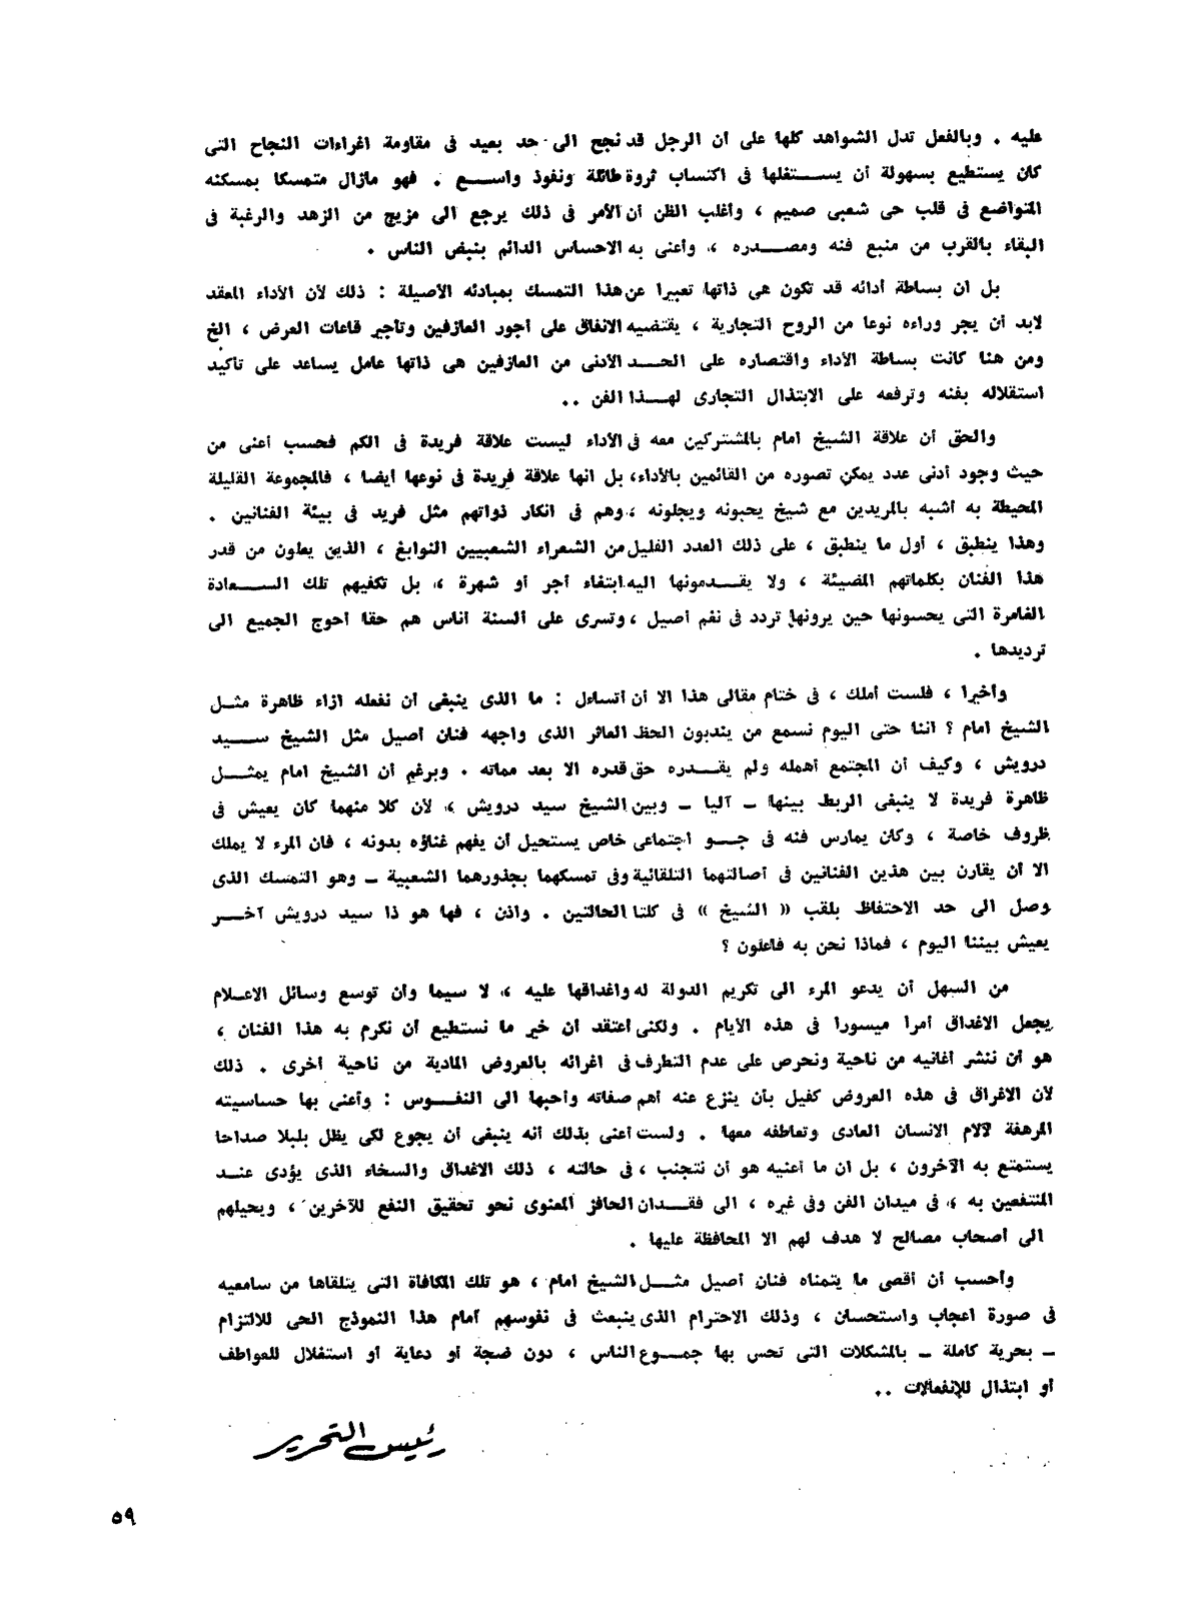 عليه . وبالفعل تدل الشواهد كلها على أن الرجل قد نجح الى حد بعيد فى مقاومة اغراءات النجاح التى
كان يستطيع بسهولة أن يستغلها فى اكتساب ثروة طائلة ونفوذ واسع . فهو مازال متمسكا بمسكنه
المتواضع فى قلب حى شعبى صميم ، وأغلب الظن أن الأمر فى ذلك يرجع الى مزيج من الزهد والرغبة فى
البقاء بالقرب من منبع فنه ومصدره ، وأعنى به الاحساس الدائم بنبض الناس .
بل ان بساطة أدائه قد تكون هى ذاتها تعبيرا عن هذا التمسك بمبادئه الأصيلة : ذلك لأن الأداء المعقد
لابد أن يجر وراءه نوعا من الروح التجارية ، يقتضيه الانفاق على أجور العازفين وتأجير قاعات العرض ، الخ
ومن هنا كانت بساطة الأداء واقتصاره على الحد الأدنى من العازفين هى ذاتها عامل يساعد على تأكيد
استقلاله بفنه وترفعه على الابتذال التجارى لهذا الفن ..
والحق أن علاقة الشيخ امام بالمشتركين معه فى الأداء ليست علاقة فريدة فى الكم فحسب أعنى من
حيث وجود أدنى عدد يمكن تصوره من القائمين بالأداء، بل انها علاقة فريدة فى نوعها أيضا ، فالمجموعة القليلة
المحيطة به أشبه بالمريدين مع شيخ يحبونه ويجلونه ، وهم فى انكار ذواتهم مثل فريد فى بيئة الفنانين .
وهذا ينطبق ، أول ما ينطبق ، على ذلك العدد القليل من الشعراء الشعبيين النوابغ ، الذين يعلون من قدر
هذا الفنان بكلماتهم المضيئة ، ولا يقدمونها اليه ابتغاء أجر أو شهرة ، بل تكفيهم تلك السعادة
الغامرة التى يحسونها حين يرونها تردد فى نغم أصيل ، وتسرى على ألسنة أناس هم حقا أحوج الجميع الى
ترديدها .
وأخيرا ، فلست أملك ، فى ختام مقالى هذا الا أن أتساءل : ما الذى ينبغى أن نفعله ازاء ظاهرة مثل
الشيخ امام ؟ اننا حتى اليوم نسمع من يندبون الحظ العاثر الذى واجهه فنان أصيل مثل الشيخ سيد
درويش ، وكيف أن المجتمع أهمله ولم يقدره حق قدره الا بعد مماته . وبرغم أن الشيخ امام يمثل
ظاهرة فريدة لا ينبغى الربط بينها – آليا – وبين الشيخ سيد درويش ، لأن كلا منهما كان يعيش فى
ظروف خاصة ، وكان يمارس فنه فى جو اجتماعى خاص يستحيل أن يفهم غناؤه بدونه ، فان المرء لا يملك
الا أن يقارن بين هذين الفنانين فى أصالتهما التلقائية وفى تمسكهما بجذورهما الشعبية – وهو التمسك الذى
وصل الى حد الاحتفاظ بلقب « الشيخ » فى كلتا الحالتين . واذن ، فها هو ذا سيد درويش آخر
يعيش بيننا اليوم ، فماذا نحن به فاعلون ؟
من السهل أن يدعو المرء الى تكريم الدولة له واغداقها عليه ، لا سيما وأن توسع وسائل الاعلام
يجعل الاغداق أمرا ميسورا فى هذه الأيام . ولكنى أعتقد أن خير ما نستطيع أن نكرم به هذا الفنان ،
هو أن ننشر أغانيه من ناحية ونحرص على عدم التطرف فى اغرائه بالعروض المادية من ناحية أخرى . ذلك
لأن الاغراق فى هذه العروض كفيل بأن ينزع عنه أهم صفاته وأحبها الى النفوس : وأعنى بها حساسيته
المرهفة لآلام الانسان العادى وتعاطفه معها . ولست أعنى بذلك أنه ينبغى أن يجوع لكى يظل بلبلا صداحا
يستمتع به الآخرون ، بل ان ما أعنيه هو أن نتجنب ، فى حالته ، ذلك الاغداق والسخاء الذى يؤدى عند
المنتفعين به ، فى ميدان الفن وفى غيره ، الى فقدان الحافز المعنوى نحو تحقيق النفع للآخرين ، ويحيلهم
الى أصحاب مصالح لا هدف لهم الا المحافظة عليها .
وأحسب أن أقصى ما يتمناه فنان أصيل مثل الشيخ امام ، هو تلك المكافأة التى يتلقاها من سامعيه
فى صورة اعجاب واستحسان ، وذلك الاحترام الذى ينبعث فى نفوسهم أمام هذا النموذج الحى للالتزام
– بحرية كاملة – بالمشكلات التى تحس بها جموع الناس ، دون ضجة أو دعاية أو استغلال للعواطف
أو ابتذال للانفعالات ..
رئيس التحرير
٥٩